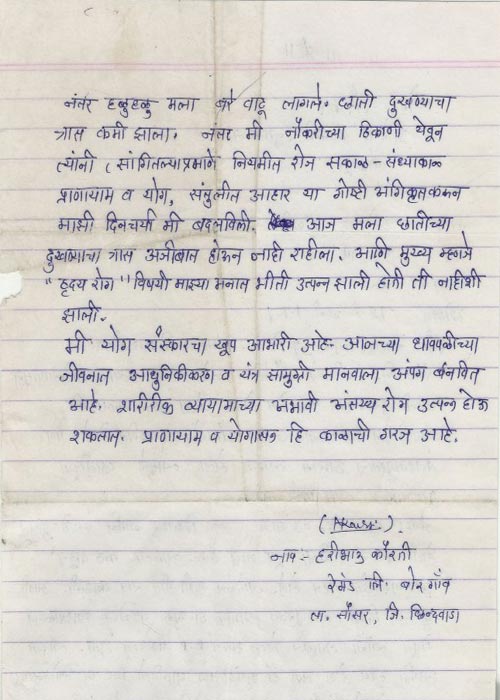 नंतर हळुहळु मला बरे वाटू लागले. छाती दुखण्याचा
त्रास कमी झाला. नंतर मी नौकरीच्या ठिकाणी येवून
त्यांनी सांगितल्याप्रमाणे नियमीत रोज सकाळ - संध्याकाळ
प्राणायाम व योग, संतुलीत आहार या गोष्टी अंगिकृत करून
माझी दिनचर्या मी बदलविली. आज मला छातीच्या
दुखण्याचा त्रास अजीबात होऊन नाही राहीला. आणि मुख्य म्हणजे
"हृदय रोग" विषयी माझ्या मनात भीती उत्पन्न झाली होती ती नाहीशी
झाली.
मी योग संस्कारचा खूप आभारी आहे. आजच्या धावपळीच्या
जीवनात आधुनिकीकरण व यंत्र सामुग्री मानवाला अपंग बनवित
आहे. शारीरीक व्यायामाच्या अभावी असंख्य रोग उत्पन्न होऊ
शकतात. प्राणायाम व योगासन हि काळाची गरज आहे.
नाव :- हरीभाऊ कोरती
रेमंड लि. बोरगाँव
ता. सौंसर, जि. छिन्दवाडा